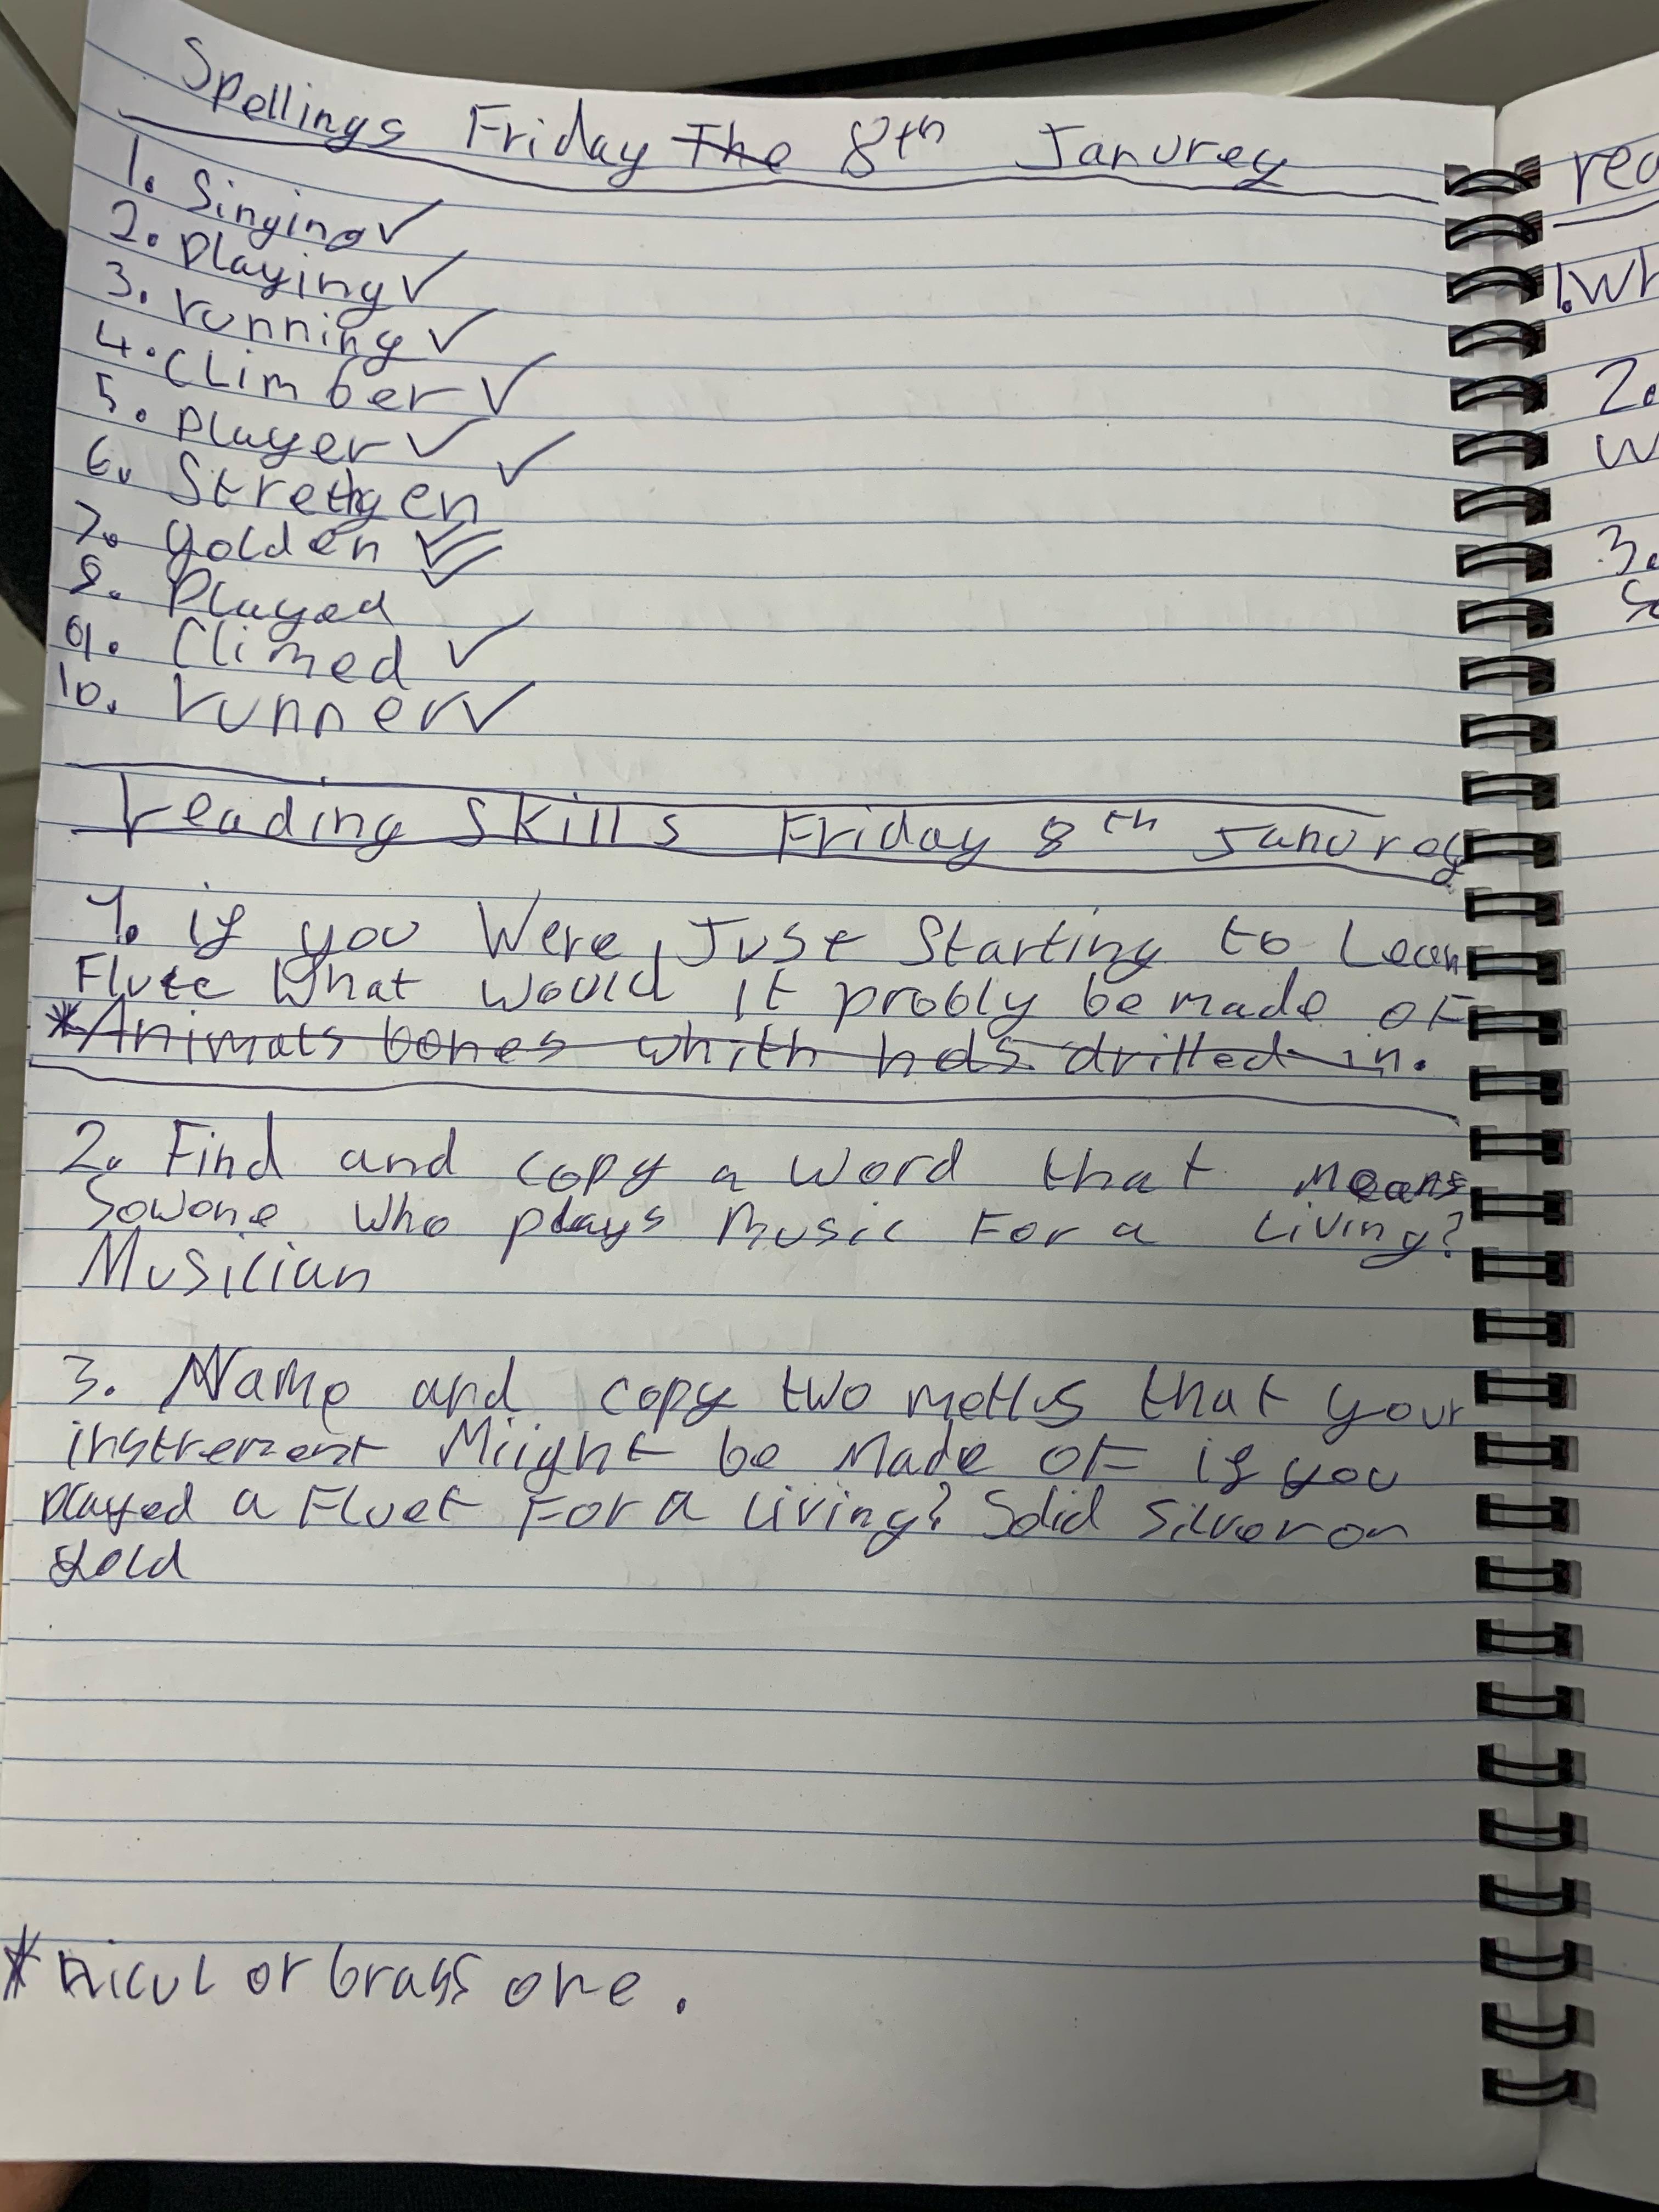 Spellings Friday The 8th Janurey
1. Singing ✓
2. playing ✓
3. running ✓
4. CLimber ✓
5. player ✓
6. Strethgen ✓
7. golden ✓
8. Played ✓
9. Climed ✓
10. runner ✓
reading Skills Friday 8th Janurey
1. if you Were Just Starting to Learn
Flute What would it probly be made of
*Animals bones whith hols drilled in.
2. Find and copy a word that means
Sowone who plays Music For a Living?
Musician
3. Name and copy two metlus that your
instrement Miight be Made OF if you
played a Fluet For a Living? Solid Silver or
gold
*nicul or brass one.
rea
1. Wh
2.
w
3.
So